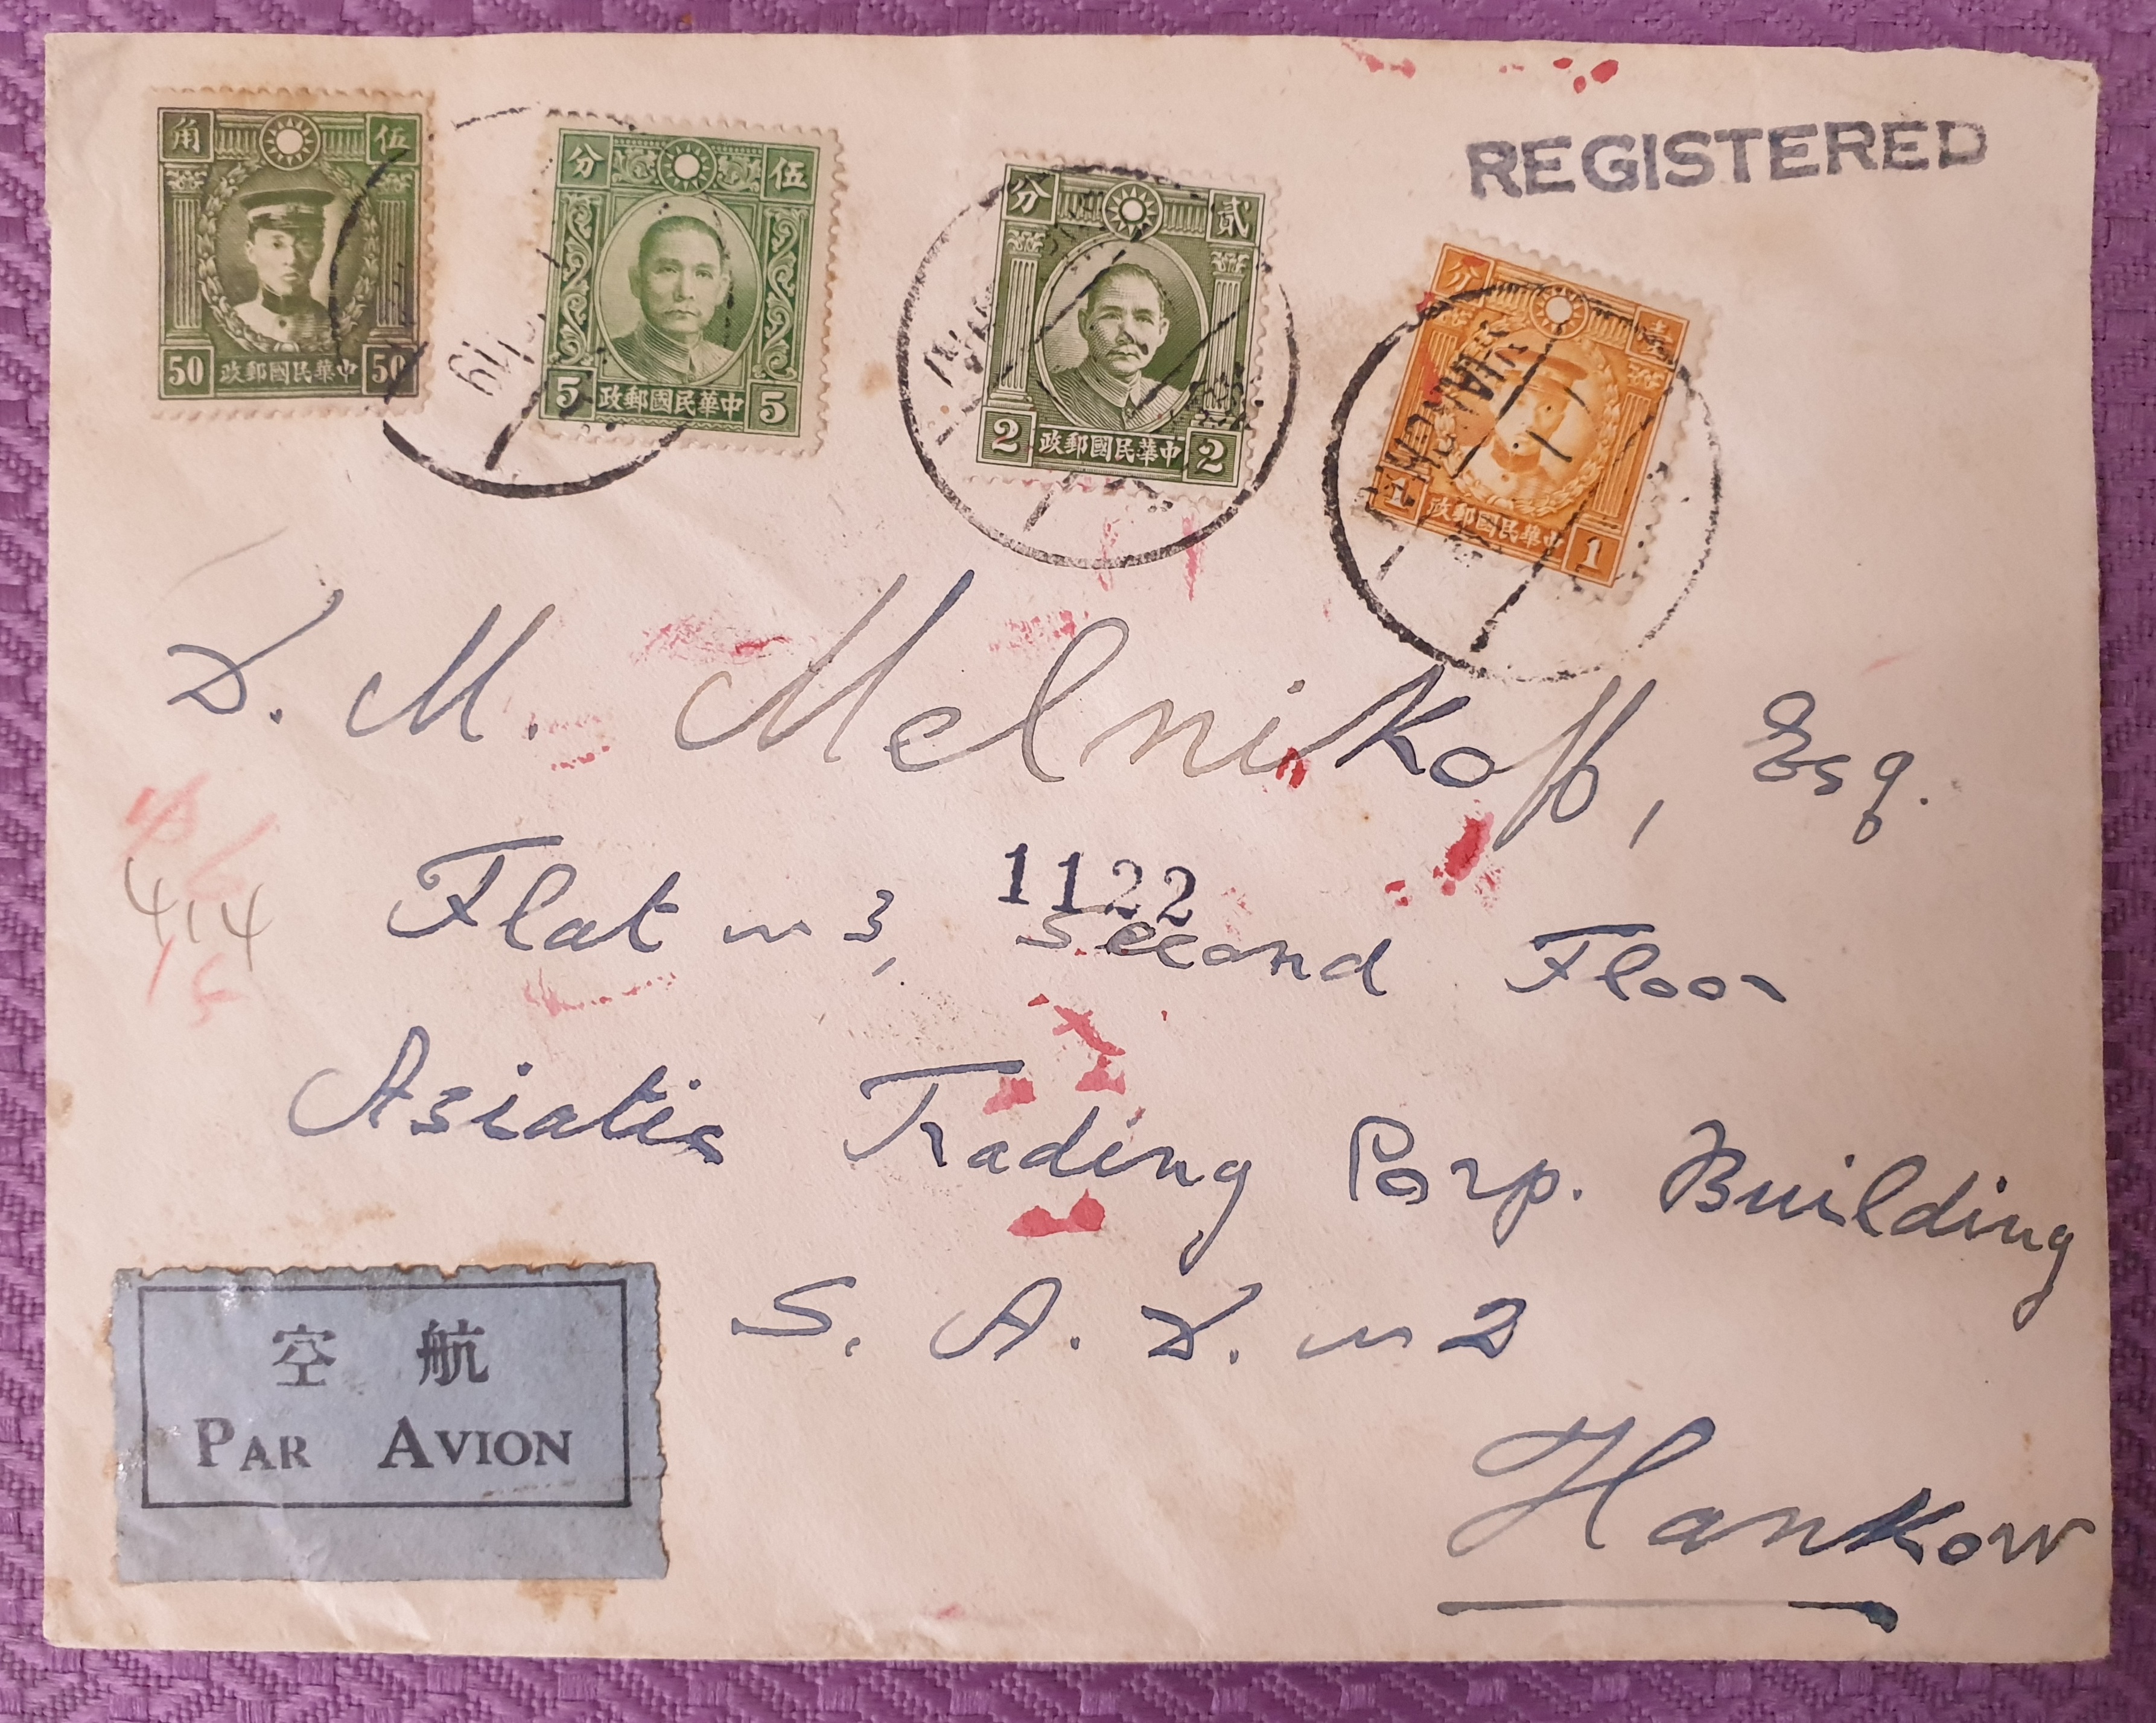 REGISTERED
角 伍
50 政郵國民華中 50
分 伍
5 政郵國民華中 5
分 貳
2 政郵國民華中 2
分 壹
1 政郵國民華中 1
SHANGHAI
D. M. Melnikoff, Esq.
1122
Flat n 3, Second Floor
414
Asiatic Trading Corp. Building
S. A. D. n 2
Hankow
空 航
PAR AVION